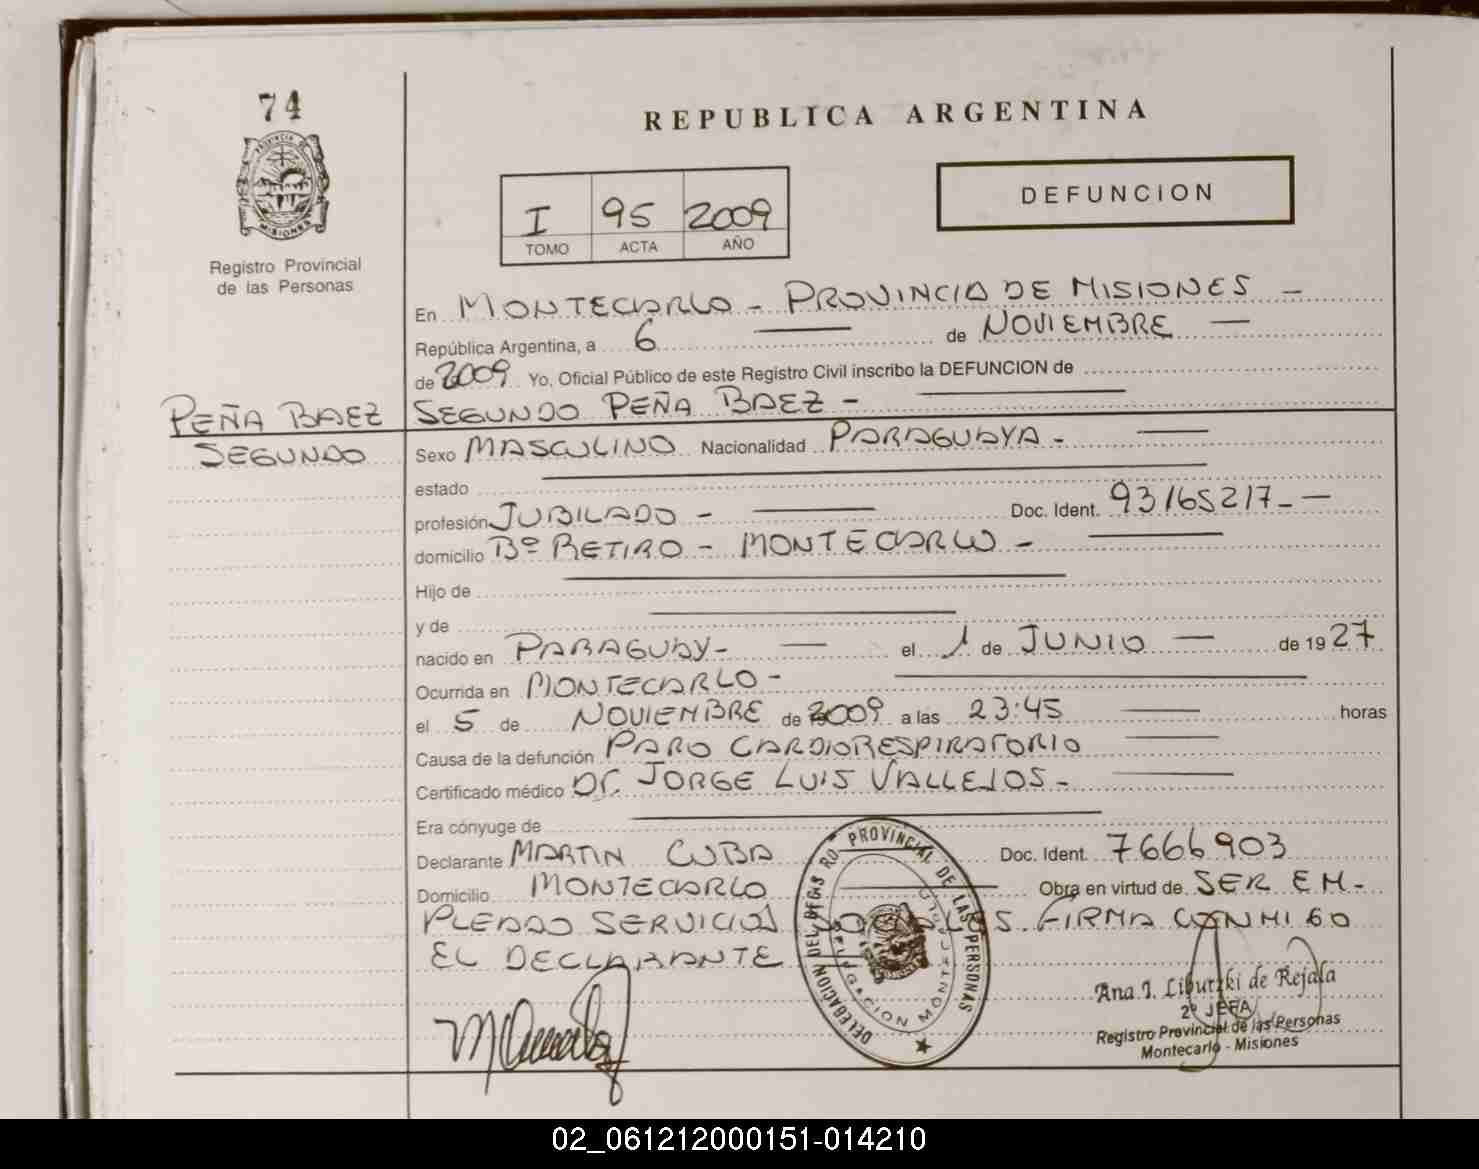 74
PROVINCIA DE
MISIONES
Registro Provincial
de las Personas
REPUBLICA ARGENTINA
I 95 2009
TOMO ACTA AÑO
DEFUNCION
En MONTECARLO - PROVINCIA DE MISIONES -
República Argentina, a 6 de NOVIEMBRE
de 2009 Yo, Oficial Público de este Registro Civil inscribo la DEFUNCION de
PEÑA BAEZ SEGUNDO PEÑA BAEZ -
SEGUNDO
Sexo MASCULINO Nacionalidad PARAGUAYA -
estado
profesión JUBILADO - Doc. Ident. 93165217 -
domicilio Bº RETIRO - MONTECARLO -
Hijo de
y de
nacido en PARAGUAY - el 1 de JUNIO de 1927
Ocurrida en MONTECARLO -
el 5 de NOVIEMBRE de 2009 a las 23:45 horas
Causa de la defunción PARO CARDIORESPIRATORIO
Certificado médico Dr. JORGE LUIS VALLEJOS -
Era cónyuge de
Declarante MARTIN CUBA Doc. Ident. 7666903
Domicilio MONTECARLO Obra en virtud de SER EM-
PLEADO SERVICIOS SOCIALES FIRMA CONMIGO
EL DECLARANTE
DELEGACION MONTECARLO
PROVINCIAL DE LAS PERSONAS
Ana I. Liburzki de Rejala
2º JEFA
Registro Provincial de las Personas
Montecarlo - Misiones
02_061212000151-014210